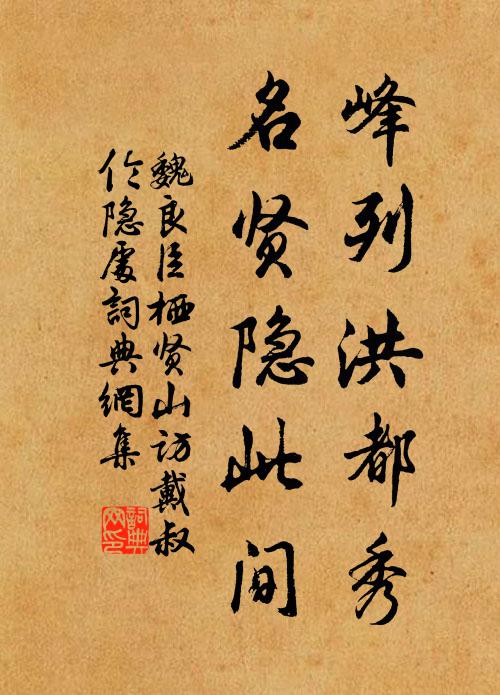 峰列洪都秀
名贤隐此间
魏良臣栖贤山访戴叔
伦隐处词典網集